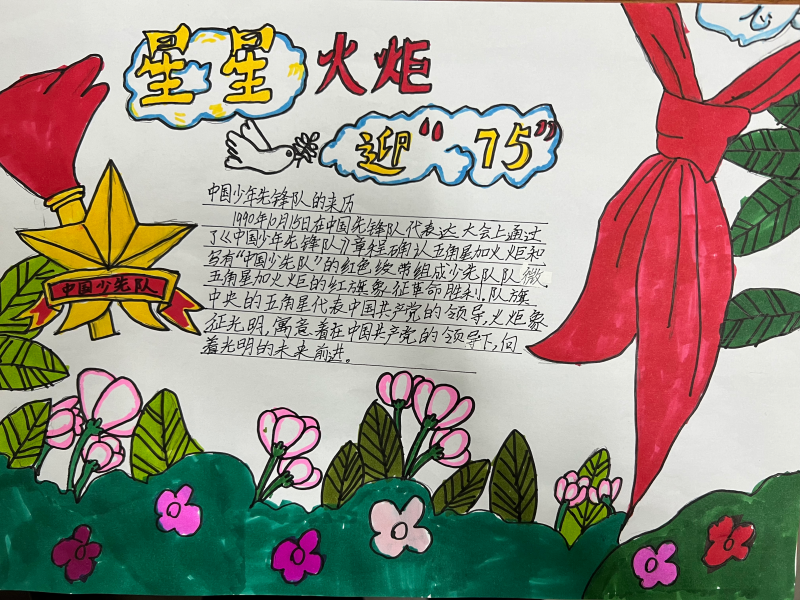 星星火炬
迎"75"
中国少先队
中国少年先锋队的来历
1990年10月15日在中国先锋队代表达大会上通过
了《中国少年先锋队》章程确认五角星加火炬和
写有"中国少先队"的红色绶带组成少先队队微.
五角星加火火炬的红旗象征革命胜利.队旗
中央的五角星代表中国共产党的领导,火炬象
征光明,寓意着在中国共产党的领导下,向
着光明的未来前进。